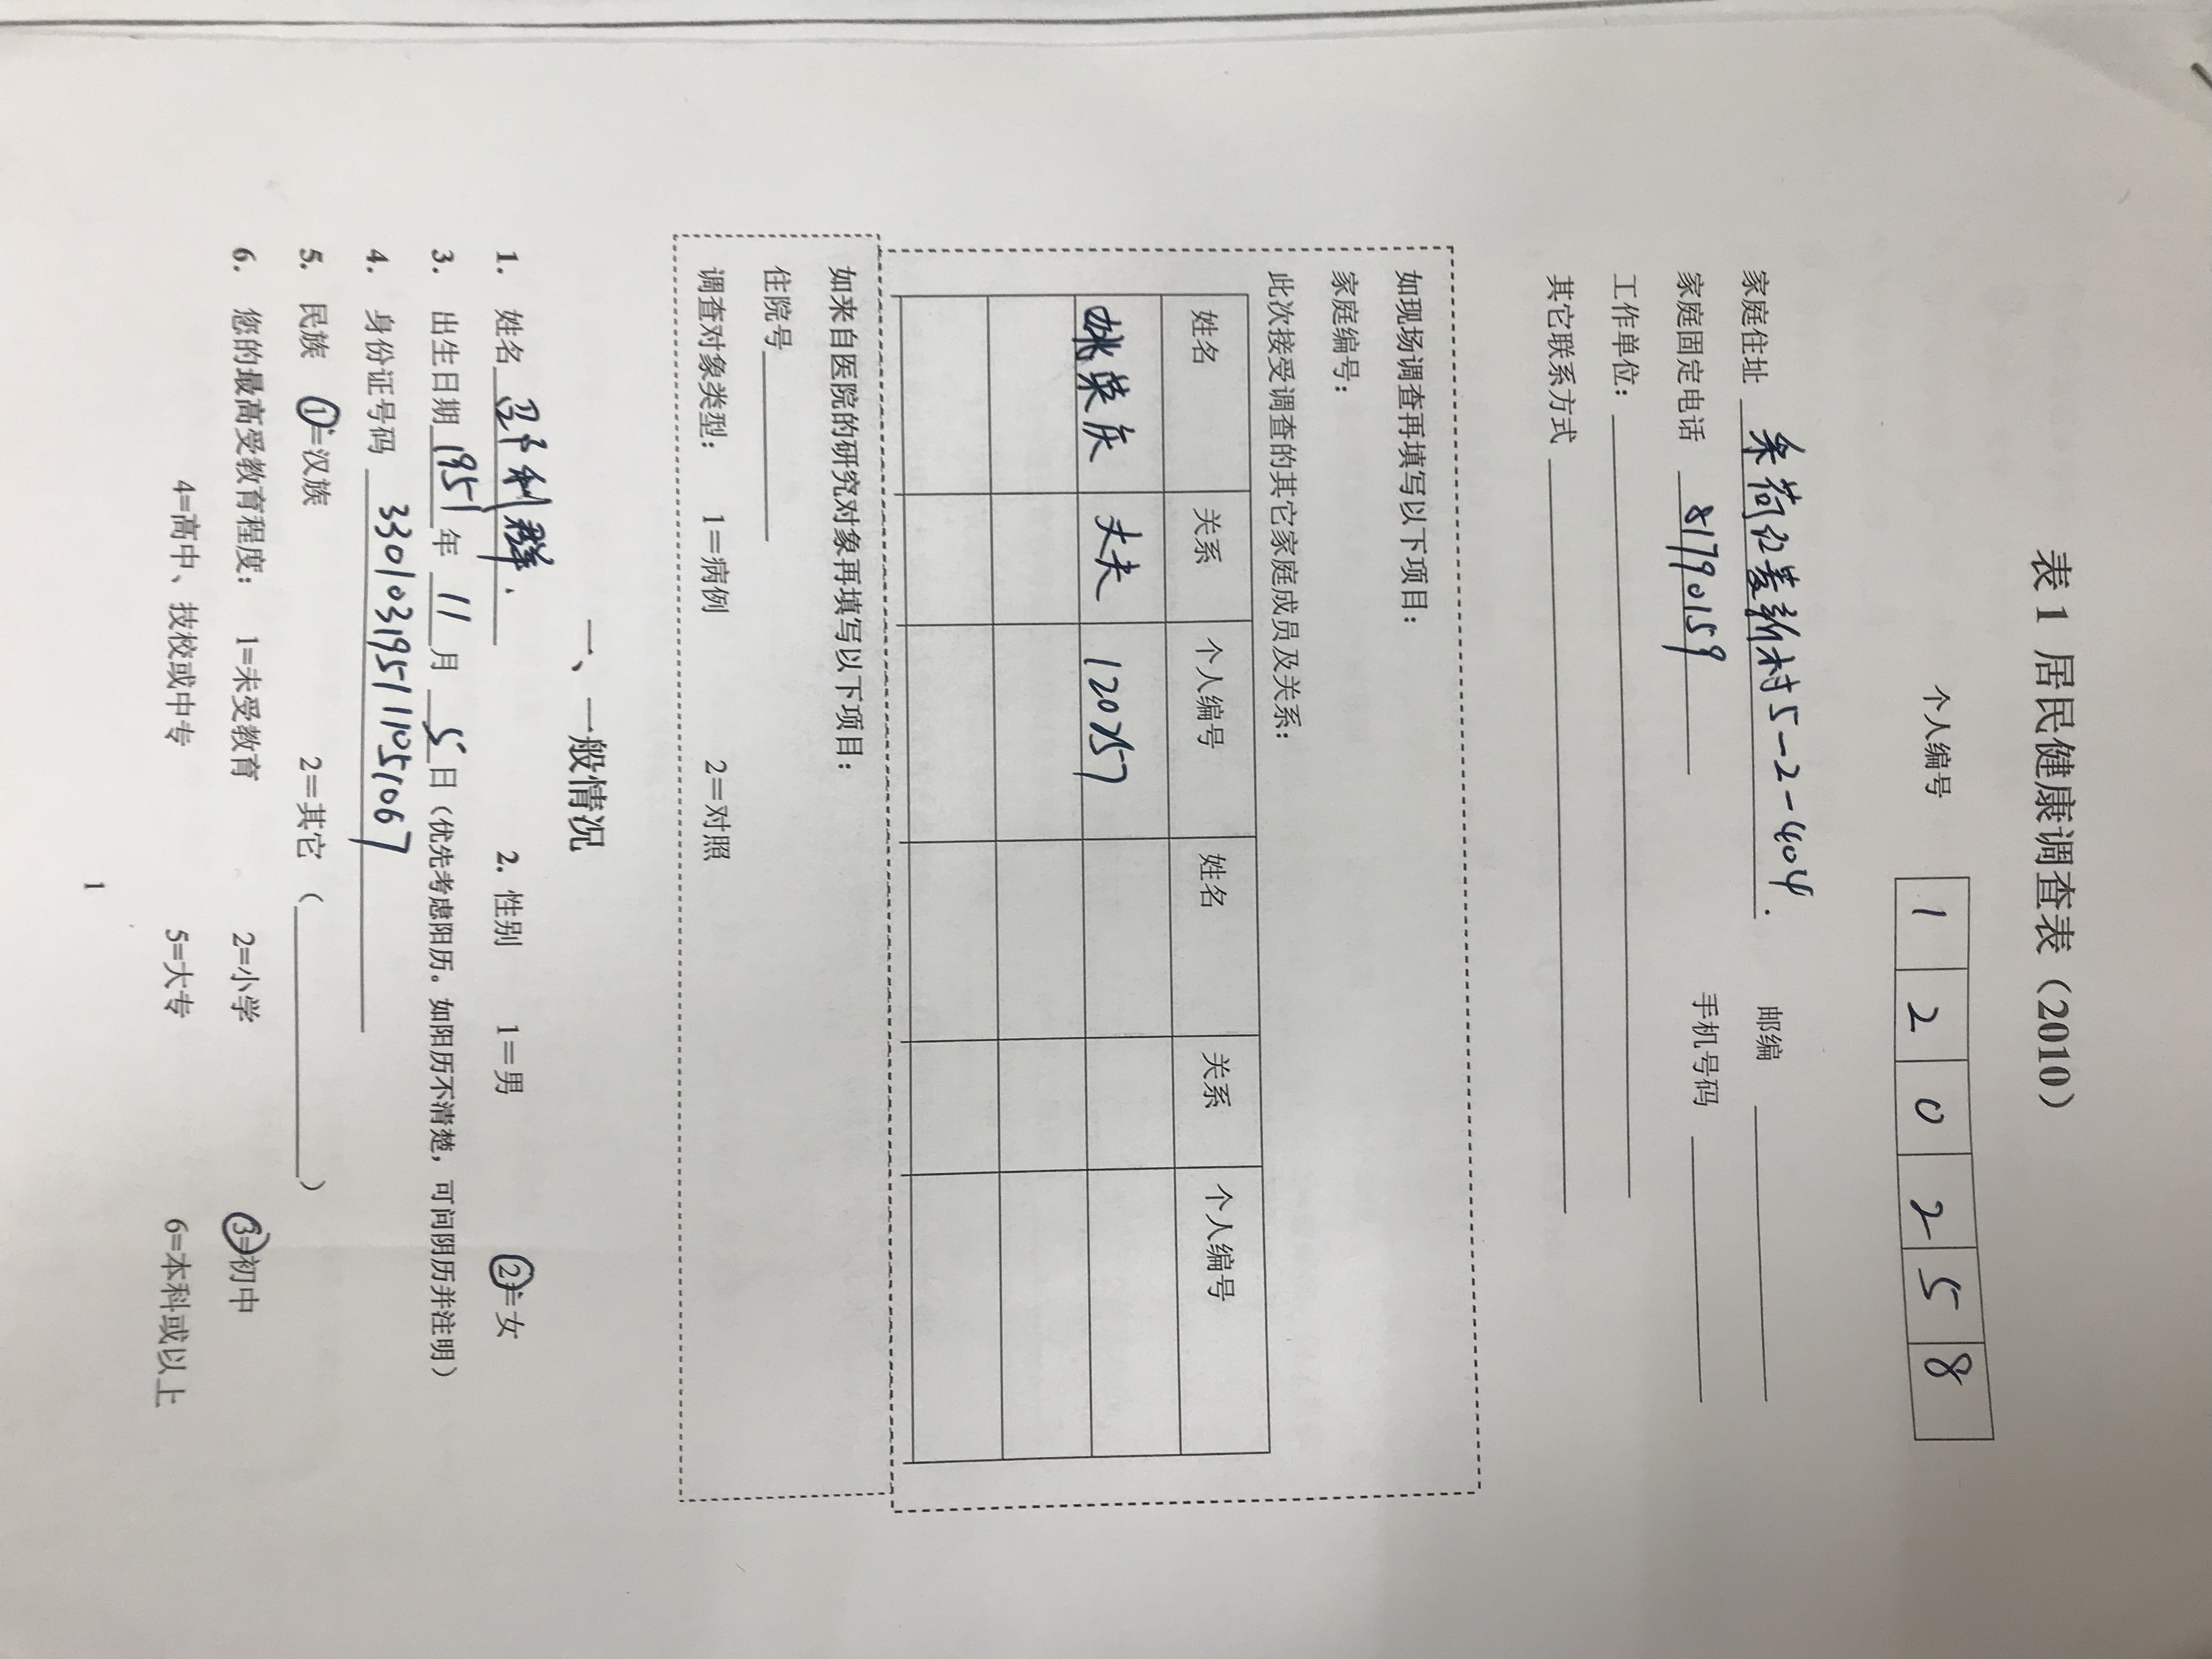 表1 居民健康调查表（2010）
个人编号 1 2 0 2 5 8
家庭住址 采荷红菱新村5-2-404. 邮编
家庭固定电话 81790159 手机号码
工作单位：
其它联系方式
如现场调查再填写以下项目：
家庭编号：
此次接受调查的其它家庭成员及关系：
姓名 关系 个人编号 姓名 关系 个人编号
姚荣庆 丈夫 120257
如来自医院的研究对象再填写以下项目：
住院号
调查对象类型： 1＝病例 2＝对照
一、一般情况
1. 姓名 邵利群. 2. 性别 1＝男 2＝女
3. 出生日期 1951 年 11 月 5 日（优先考虑阳历。如阳历不清楚，可问阴历并注明）
4. 身份证号码 330103195111051067
5. 民族 1＝汉族 2＝其它 （ ）
6. 您的最高受教育程度： 1=未受教育 2=小学 3=初中
4=高中、技校或中专 5=大专 6=本科或以上
1